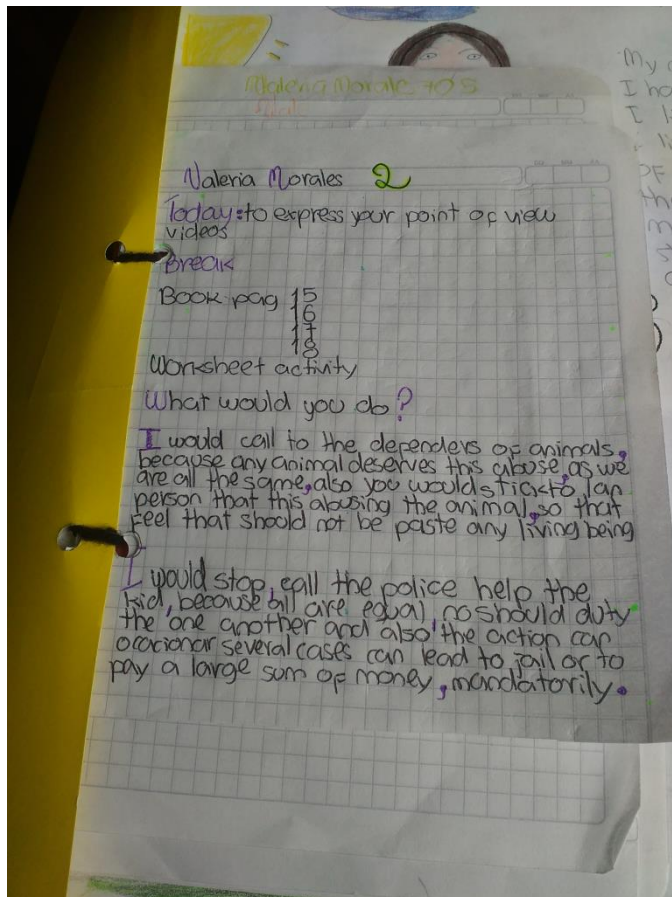 Valeria Morales 705
Valeria Morales 2
Today: to express your point of view
videos
Break
Book pag 15
16
17
18
Worksheet activity
What would you do?
I would call to the dependers of animals,
because any animal deserves this abuse, as we
are all the same, also you would stick to lan
person that this abusing the animal, so that
feel that should not be paste any living being
I would stop, call the police help the
kid, because all are equal no should duty
the one another and also the action can
ococionar several cases can lead to jail or to
pay a large sum of money, mandatorily.
My
I ha
I l
li
OF
th
m
s